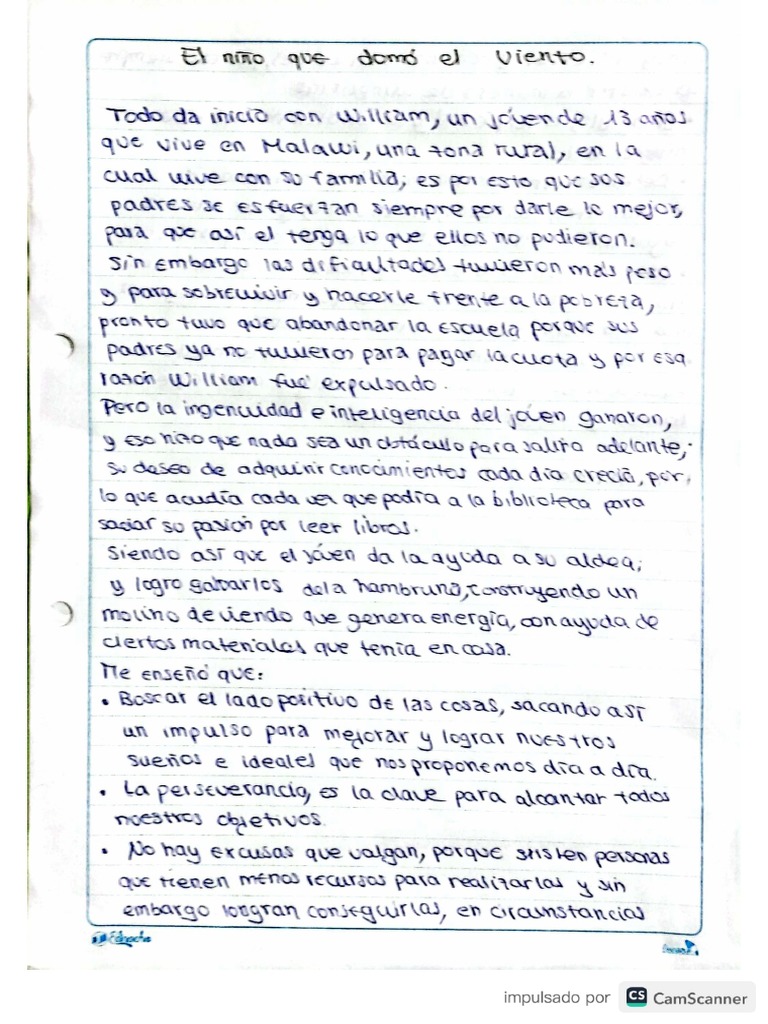 El niño que domó el viento.
Todo da inicio con William, un jóven de 13 años
que vive en Malawi, una zona rural, en la
cual vive con su familia; es por esto que sus
padres se esfuerzan siempre por darle lo mejor,
para que así el tenga lo que ellos no pudieron.
Sin embargo las dificultades tuvieron más peso
y para sobrevivir y hacerle frente a la pobreza,
pronto tuvo que abandonar la escuela porque sus
padres ya no tuvieron para pagar la cuota y por esa
razón William fue expulsado.
Pero la ingenuidad e inteligencia del jóven ganaron,
y eso hizo que nada sea un obtáculo para salira adelante,
su deseo de adquirir conocimientos cada día creció, por
lo que acudía cada vez que podía a la biblioteca para
saciar su pasión por leer libros.
Siendo así que el jóven da la ayuda a su aldea;
y logro salvarlos de la hambruna, construyendo un
molino de viendo que genera energía, con ayuda de
ciertos materiales que tenía en casa.
Me enseñó que:
• Buscar el lado positivo de las cosas, sacando así
un impulso para mejorar y lograr nuestros
sueños e ideales que nos proponemos día a día.
• La perseverancia, es la clave para alcanzar todos
nuestros objetivos.
• No hay excusas que valgan, porque personas
que tienen menos recursos para realizarlas y sin
embargo longran conseguirlas, en circunstancias
impulsado por CS CamScanner